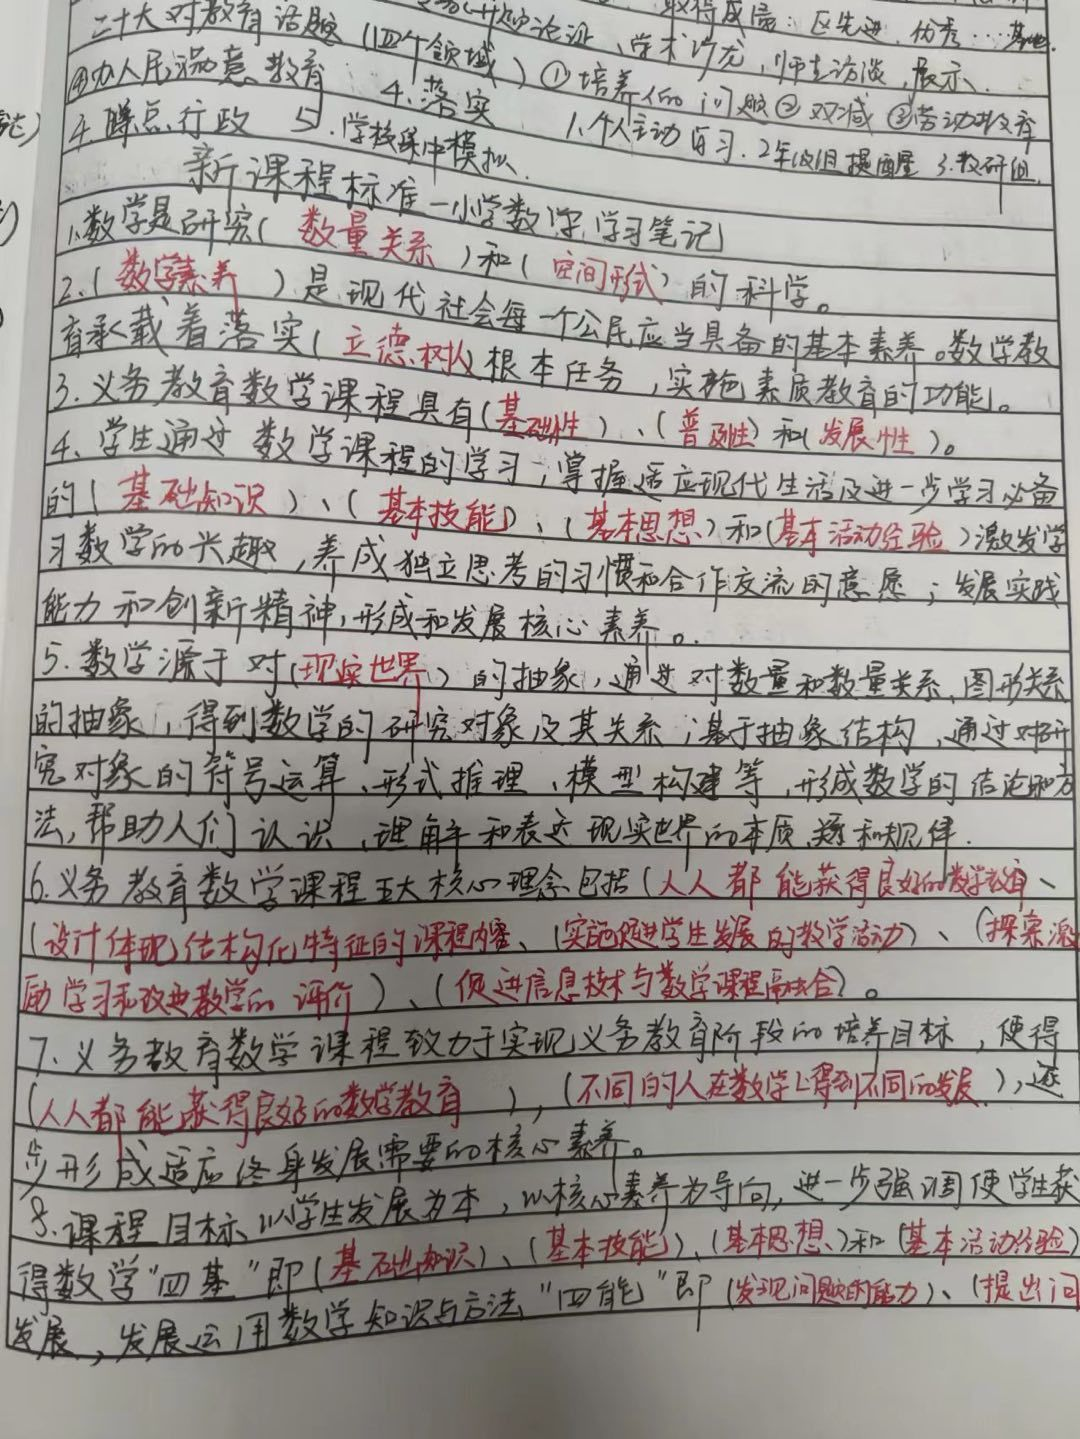 取得成绩：区先进、优秀…
二十大对教育话题（四个领域）①培养人的问题②双减③劳动教育
④办人民满意教育 4.落实 1.个人主动自习.2年级组提醒 3.教研组.
4.蹲点行政 5.学校集中模拟.
新课程标准—小学数学,学习笔记
1.数学是研究(数量关系)和(空间形式)的科学。
2.(数学素养)是现代社会每一个公民应当具备的基本素养。数学教
育承载着落实(立德树人)根本任务,实施素质教育的功能。
3.义务教育数学课程具有(基础性)、(普及性)和(发展性)。
4、学生通过数学课程的学习,掌握适应现代生活及进一步学习必备
的(基础知识)、(基本技能)、(基本思想)和(基本活动经验)激发学
习数学的兴趣,养成独立思考的习惯和合作交流的意愿;发展实践
能力和创新精神,形成和发展核心素养。
5.数学源于对(现实世界)的抽象,通过对数量和数量关系、图形关系
的抽象,得到数学的研究对象及其关系;基于抽象结构,通过对研
究对象的符号运算、形式推理、模型构建等,形成数学的结论和方
法,帮助人们认识、理解和表达现实世界的本质、关系和规律.
6.义务教育数学课程五大核心理念包括(人人都能获得良好的数学教育、
(设计体现结构化特征的课程内容、(实施促进学生发展的教学活动)、(探索激
励学习和改进教学的评价)、(促进信息技术与数学课程融合)。
7.义务教育数学课程致力于实现义务教育阶段的培养目标,使得
(人人都能获得良好的数学教育),(不同的人在数学上得到不同的发展),逐
步形成适应终身发展需要的核心素养。
8.课程目标以学生发展为本,以核心素养为导向,进一步强调使学生获
得数学"四基"即(基础知识)、(基本技能)、(基本思想)和(基本活动经验)
发展,发展运用数学知识与方法"四能"即(发现问题的能力)、(提出问